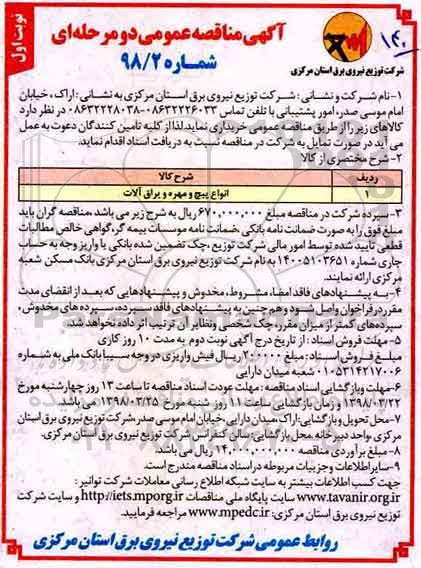 نوبت اول
آگهی مناقصه عمومی دو مرحله‌ای
شماره ۹۸/۲
۱۴۰
شرکت توزیع نیروی برق استان مرکزی
۱-نام شرکت و نشانی: شرکت توزیع نیروی برق استان مرکزی به نشانی: اراک، خیابان
امام موسی صدر، امور پشتیبانی با تلفن تماس ۰۸۶۳۲۲۲۶۰۳۳-۰۸۶۳۲۲۲۸۰۳۸ در نظر دارد
کالاهای زیر را از طریق مناقصه عمومی خریداری نماید.لذا از کلیه تامین کنندگان دعوت به عمل
می آید در صورت تمایل به شرکت در مناقصه نسبت به دریافت اسناد اقدام نماید.
۲-شرح مختصری از کالا
ردیف شرح کالا
۱ انواع پیچ و مهره و یراق آلات
۳- سپرده شرکت در مناقصه مبلغ ۶۷۰,۰۰۰,۰۰۰ ریال به شرح زیر می باشد، مناقصه گران باید
مبلغ فوق را به صورت ضمانت نامه بانکی، ضمانت نامه موسسات بیمه گر، گواهی خالص مطالبات
قطعی تایید شده توسط امور مالی شرکت توزیع، چک تضمین شده بانکی یا واریز وجه به حساب
جاری شماره ۱۴۰۰۵۱۰۳۶۵۱ به نام شرکت توزیع نیروی برق استان مرکزی بانک مسکن شعبه
مرکزی ارائه نمایند.
۴-به پیشنهادهای فاقد امضا، مشروط، مخدوش و پیشنهادهایی که بعد از انقضای مدت
مقرر در فراخوان واصل شود و هم چنین به پیشنهادهای فاقد سپرده، سپرده های مخدوش،
سپرده‌های کمتر از میزان مقرر، چک شخصی و نظایر آن ترتیب اثر داده نخواهد شد.
۵- مهلت فروش اسناد: از تاریخ درج آگهی نوبت دوم به مدت ۱۰ روز کاری
مبلغ فروش اسناد: مبلغ ۲۰۰۰۰۰ ریال فیش واریزی در وجه سیبا بانک ملی به شماره
۰۱۰۵۳۱۴۲۱۷۰۰۶ شعبه میدان دارایی
۶-مهلت وبازگشایی اسناد مناقصه: مهلت عودت اسناد مناقصه تا ساعت ۱۳ روز چهارشنبه مورخ
۱۳۹۸/۰۳/۲۲ و زمان بازگشایی ساعت ۱۱ روز شنبه مورخ ۱۳۹۸/۰۳/۲۵ می باشد.
۷-محل تحویل وبازگشایی: اراک، میدان دارایی، خیابان امام موسی صدر، شرکت توزیع نیروی برق استان
مرکزی، واحد دبیرخانه، محل بازگشایی: سالن کنفرانس شرکت توزیع نیروی برق استان مرکزی.
۸-مبلغ برآوردی مناقصه ۱۴,۰۰۰,۰۰۰,۰۰۰ ریال می باشد.
۹-سایر اطلاعات و جزییات مربوطه در اسناد مناقصه مندرج است.
جهت کسب اطلاعات بیشتر به سایت شبکه اطلاع رسانی معاملات شرکت توانیر:
www.tavanir.org.ir سایت پایگاه ملی مناقصات http://iets.mporg.ir و سایت شرکت
توزیع نیروی برق استان مرکزی: www.mpedc.ir مراجعه فرمایید.
روابط عمومی شرکت توزیع نیروی برق استان مرکزی